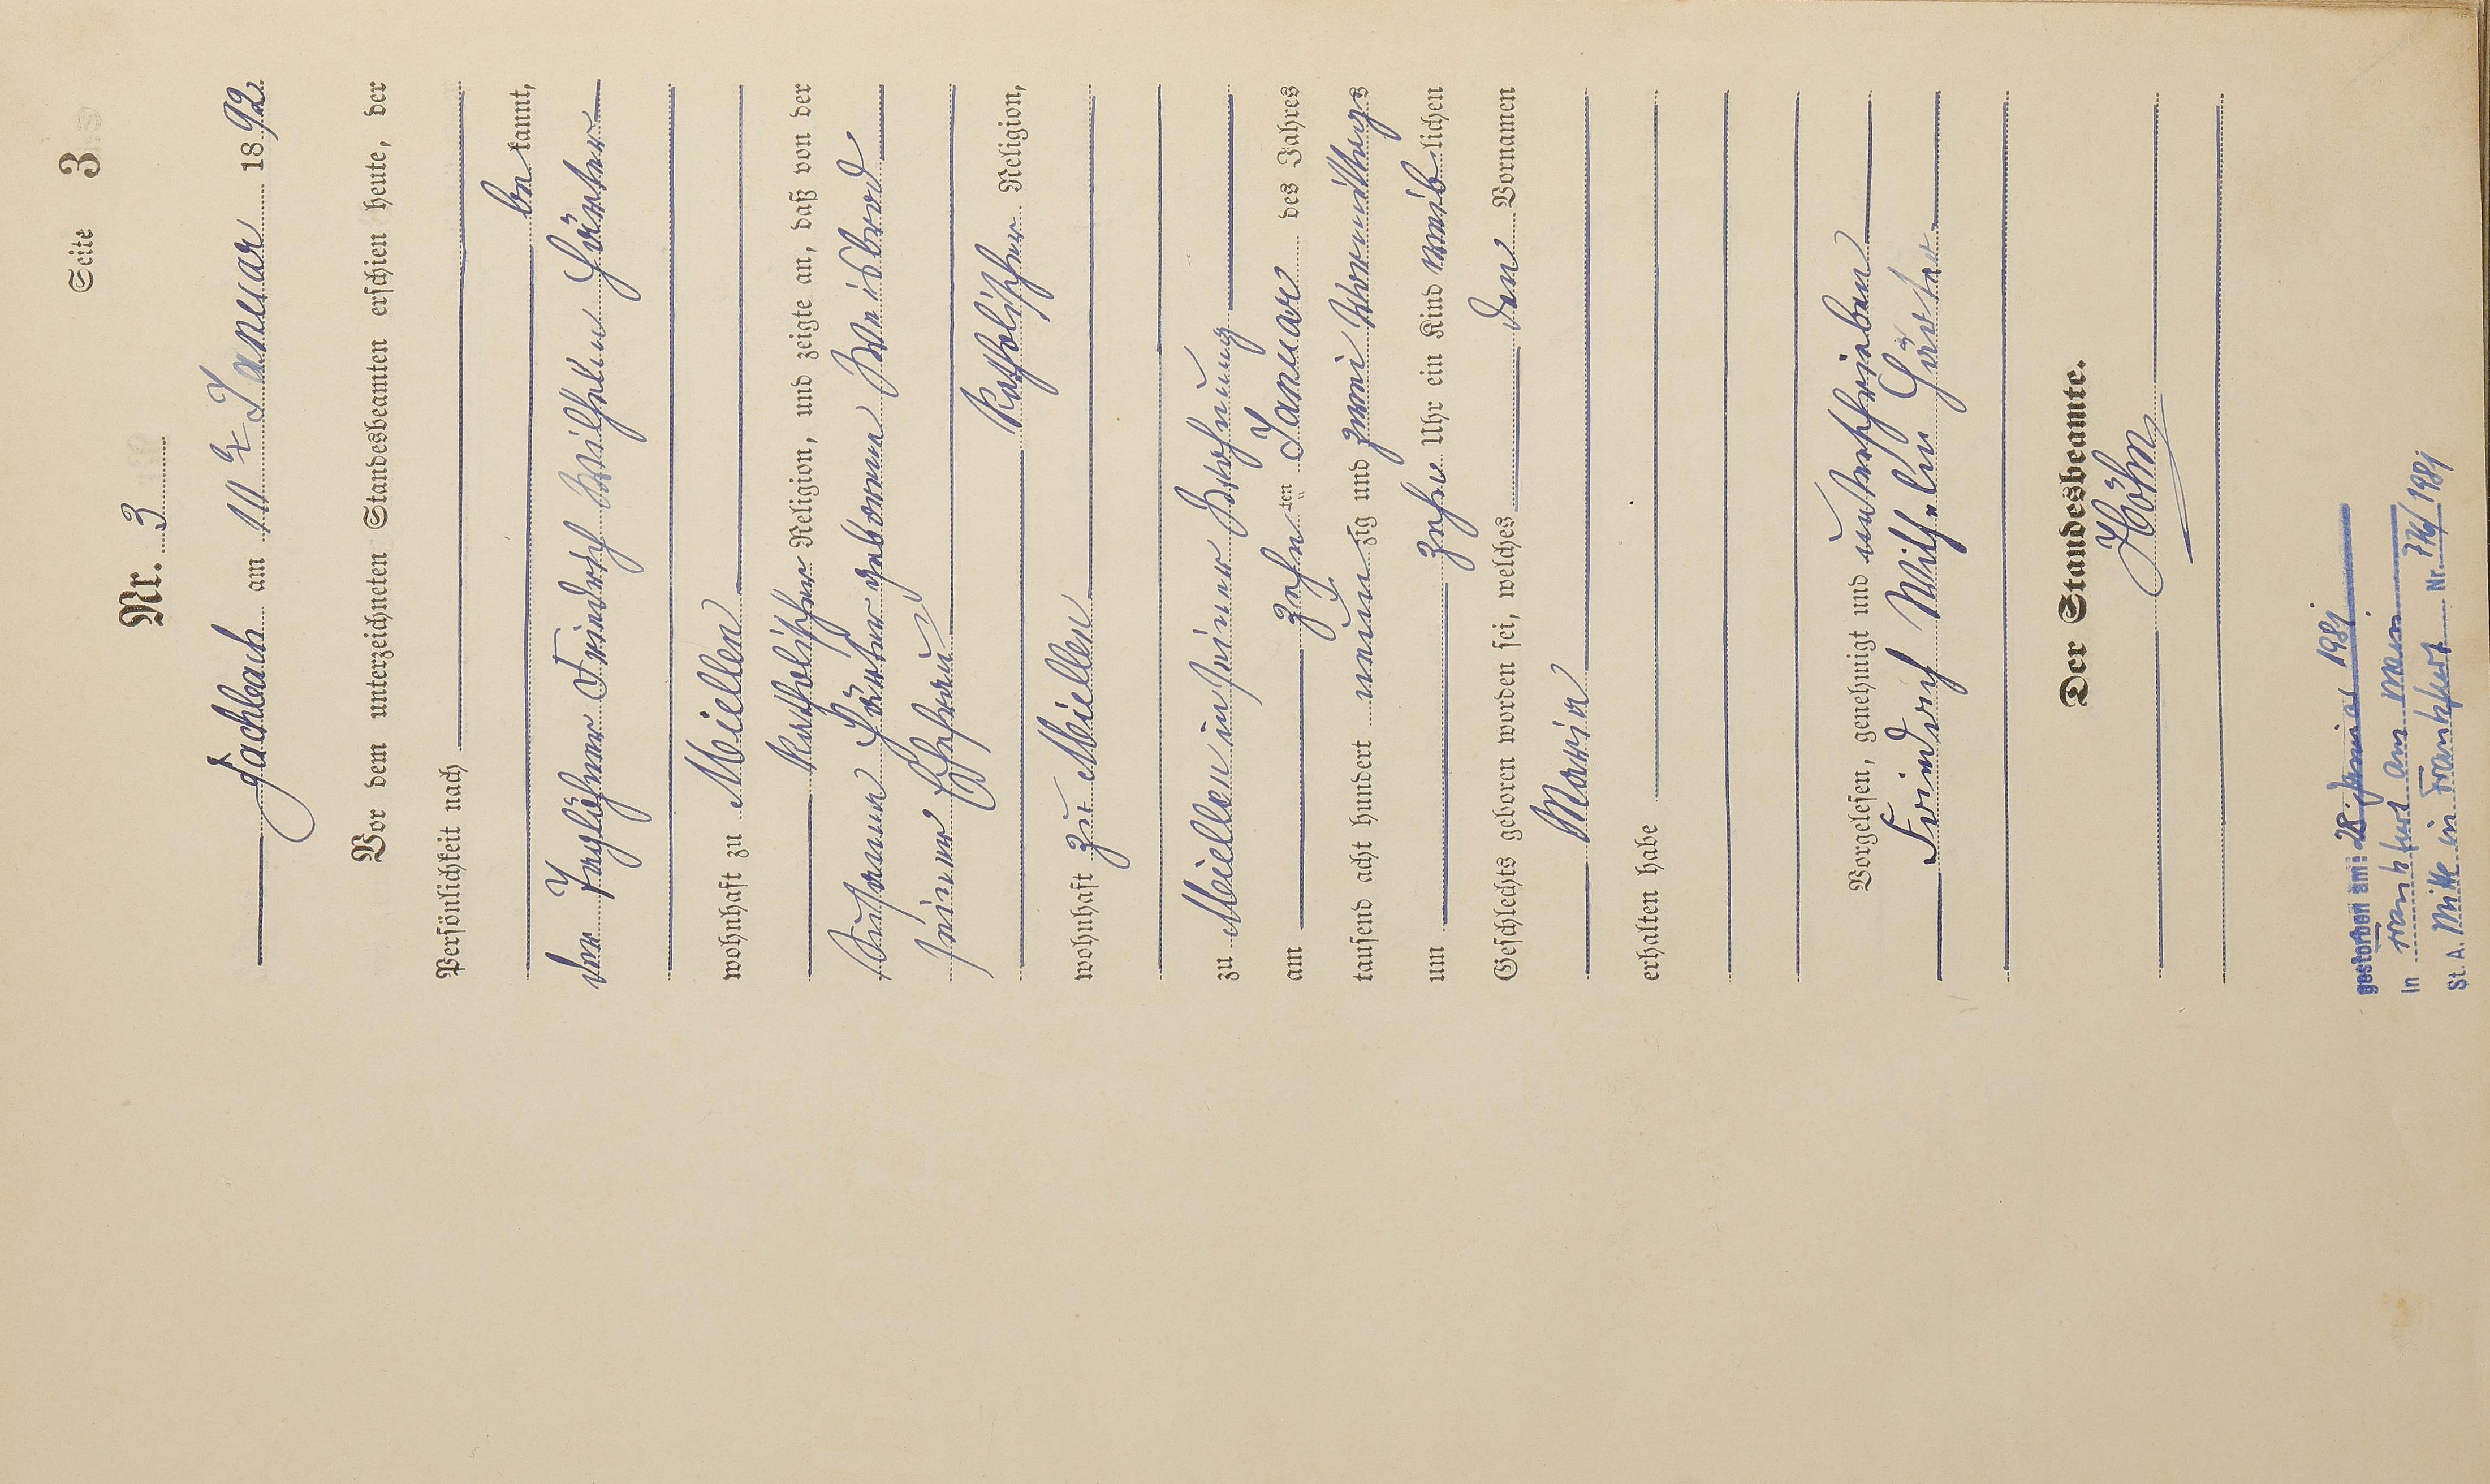 Seite 3
Nr. 3
Fachbach am 11ten Januar 1892.
Vor dem unterzeichneten Standesbeamten erschien heute, der
Persönlichkeit nach
bekannt,
der Taglöhner Friedrich Wilhelm
wohnhaft zu Miellen
katholischer Religion, und zeigte an, daß von der
geborene Weisbrod
seiner Ehefrau
katholischer Religion,
wohnhaft zu Miellen
zu Miellen in seiner Wohnung
am zehnten Januar des Jahres
tausend acht hundert neunzig und zwei Vormittags
um zehn Uhr ein Kind weiblichen
Geschlechts geboren worden sei, welches den Vornamen
Maria
erhalten habe
Vorgelesen, genehmigt und unterschrieben
Friedrich Wilhelm
Der Standesbeamte.
Höhn
gestorben am: 28. Januar 1981
in Frankfurt am Main
St. A. Mitte in Frankfurt Nr. /1981